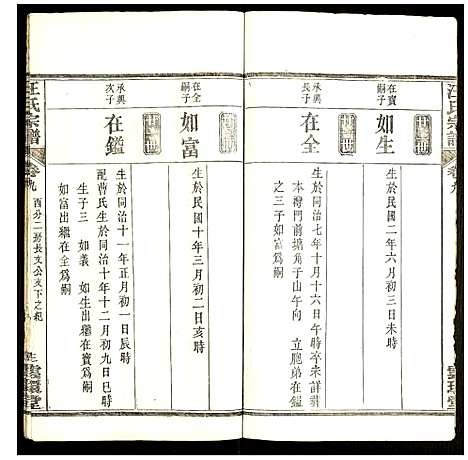 汪氏宗譜
在寶
嗣子
如生
生於民國二年六月初三日未時
承興
長子
在全
生於同治七年十月十六日午時卒未詳葬
本灣門前塘角子山午向 立胞弟在鑑
之三子如富為嗣
在全
嗣子
如富
生於民國十年三月初二日亥時
承興
次子
在鑑
生於同治十一年正月初一日辰時
配曹氏生於同治十年十二月初九日巳時
生子三 如義 如生出繼在寶為嗣
如富出繼在全為嗣
汪氏宗譜
卷九
酉分二房長文公支下之紀